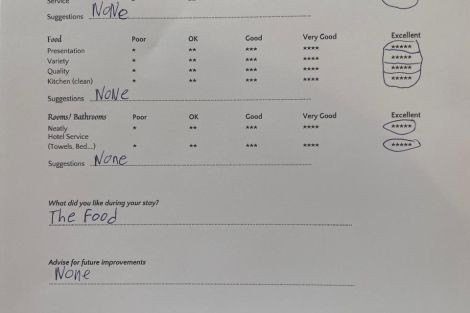 Service
Suggestions None
Food Poor OK Good Very Good Excellent
Presentation * ** *** **** *****
Variety * ** *** **** *****
Quality * ** *** **** *****
Kitchen (clean) * ** *** **** *****
Suggestions None
Rooms/ Bathrooms Poor OK Good Very Good Excellent
Neatly * ** *** **** *****
Hotel Service
(Towels, Bed...) * ** *** **** *****
Suggestions None
What did you like during your stay?
The Food
Advise for future improvements
None